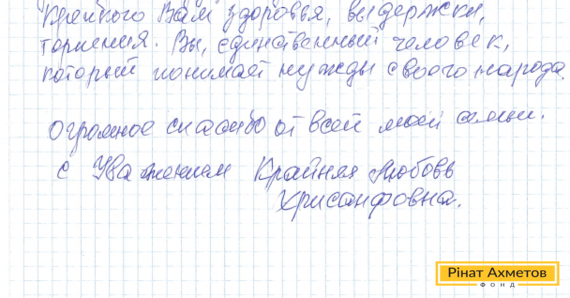 Крепкого Вам здоровья, выдержки,
терпения. Вы, единственный человек,
который понимает нужды своего народа.
Огромное спасибо от всей моей семьи.
С Уважением Крайняя Любовь
Хрисанфовна.
Рінат Ахметов
ФОНД